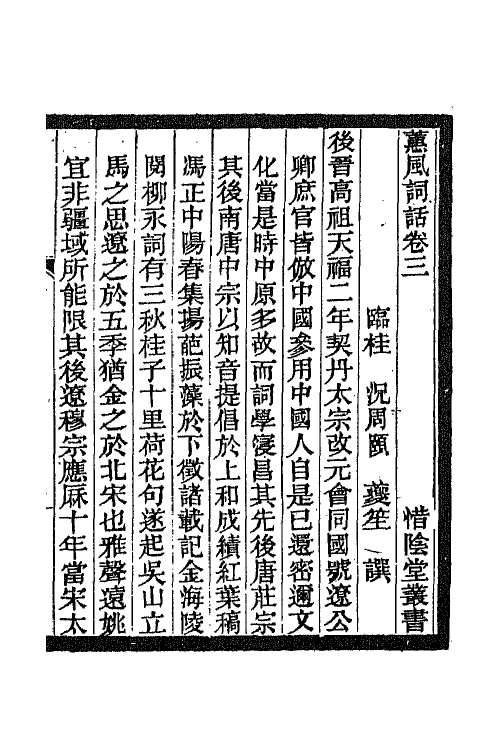 蕙風詞話卷三　惜陰堂叢書
臨桂　況周頤　夔笙　譔
後晉高祖天福二年契丹太宗改元會同國號遼公
卿庶官皆倣中國參用中國人自是已還密邇文
化當是時中原多故而詞學寖昌其先後唐莊宗
其後南唐中宗以知音提倡於上和成績紅葉稿
馮正中陽春集揚葩振藻於下徵諸載記金海陵
閱柳永詞有三秋桂子十里荷花句遂起吳山立
馬之思遼之於五季猶金之於北宋也雅聲遠姚
宜非疆域所能限其後遼穆宗應厤十年當宋太